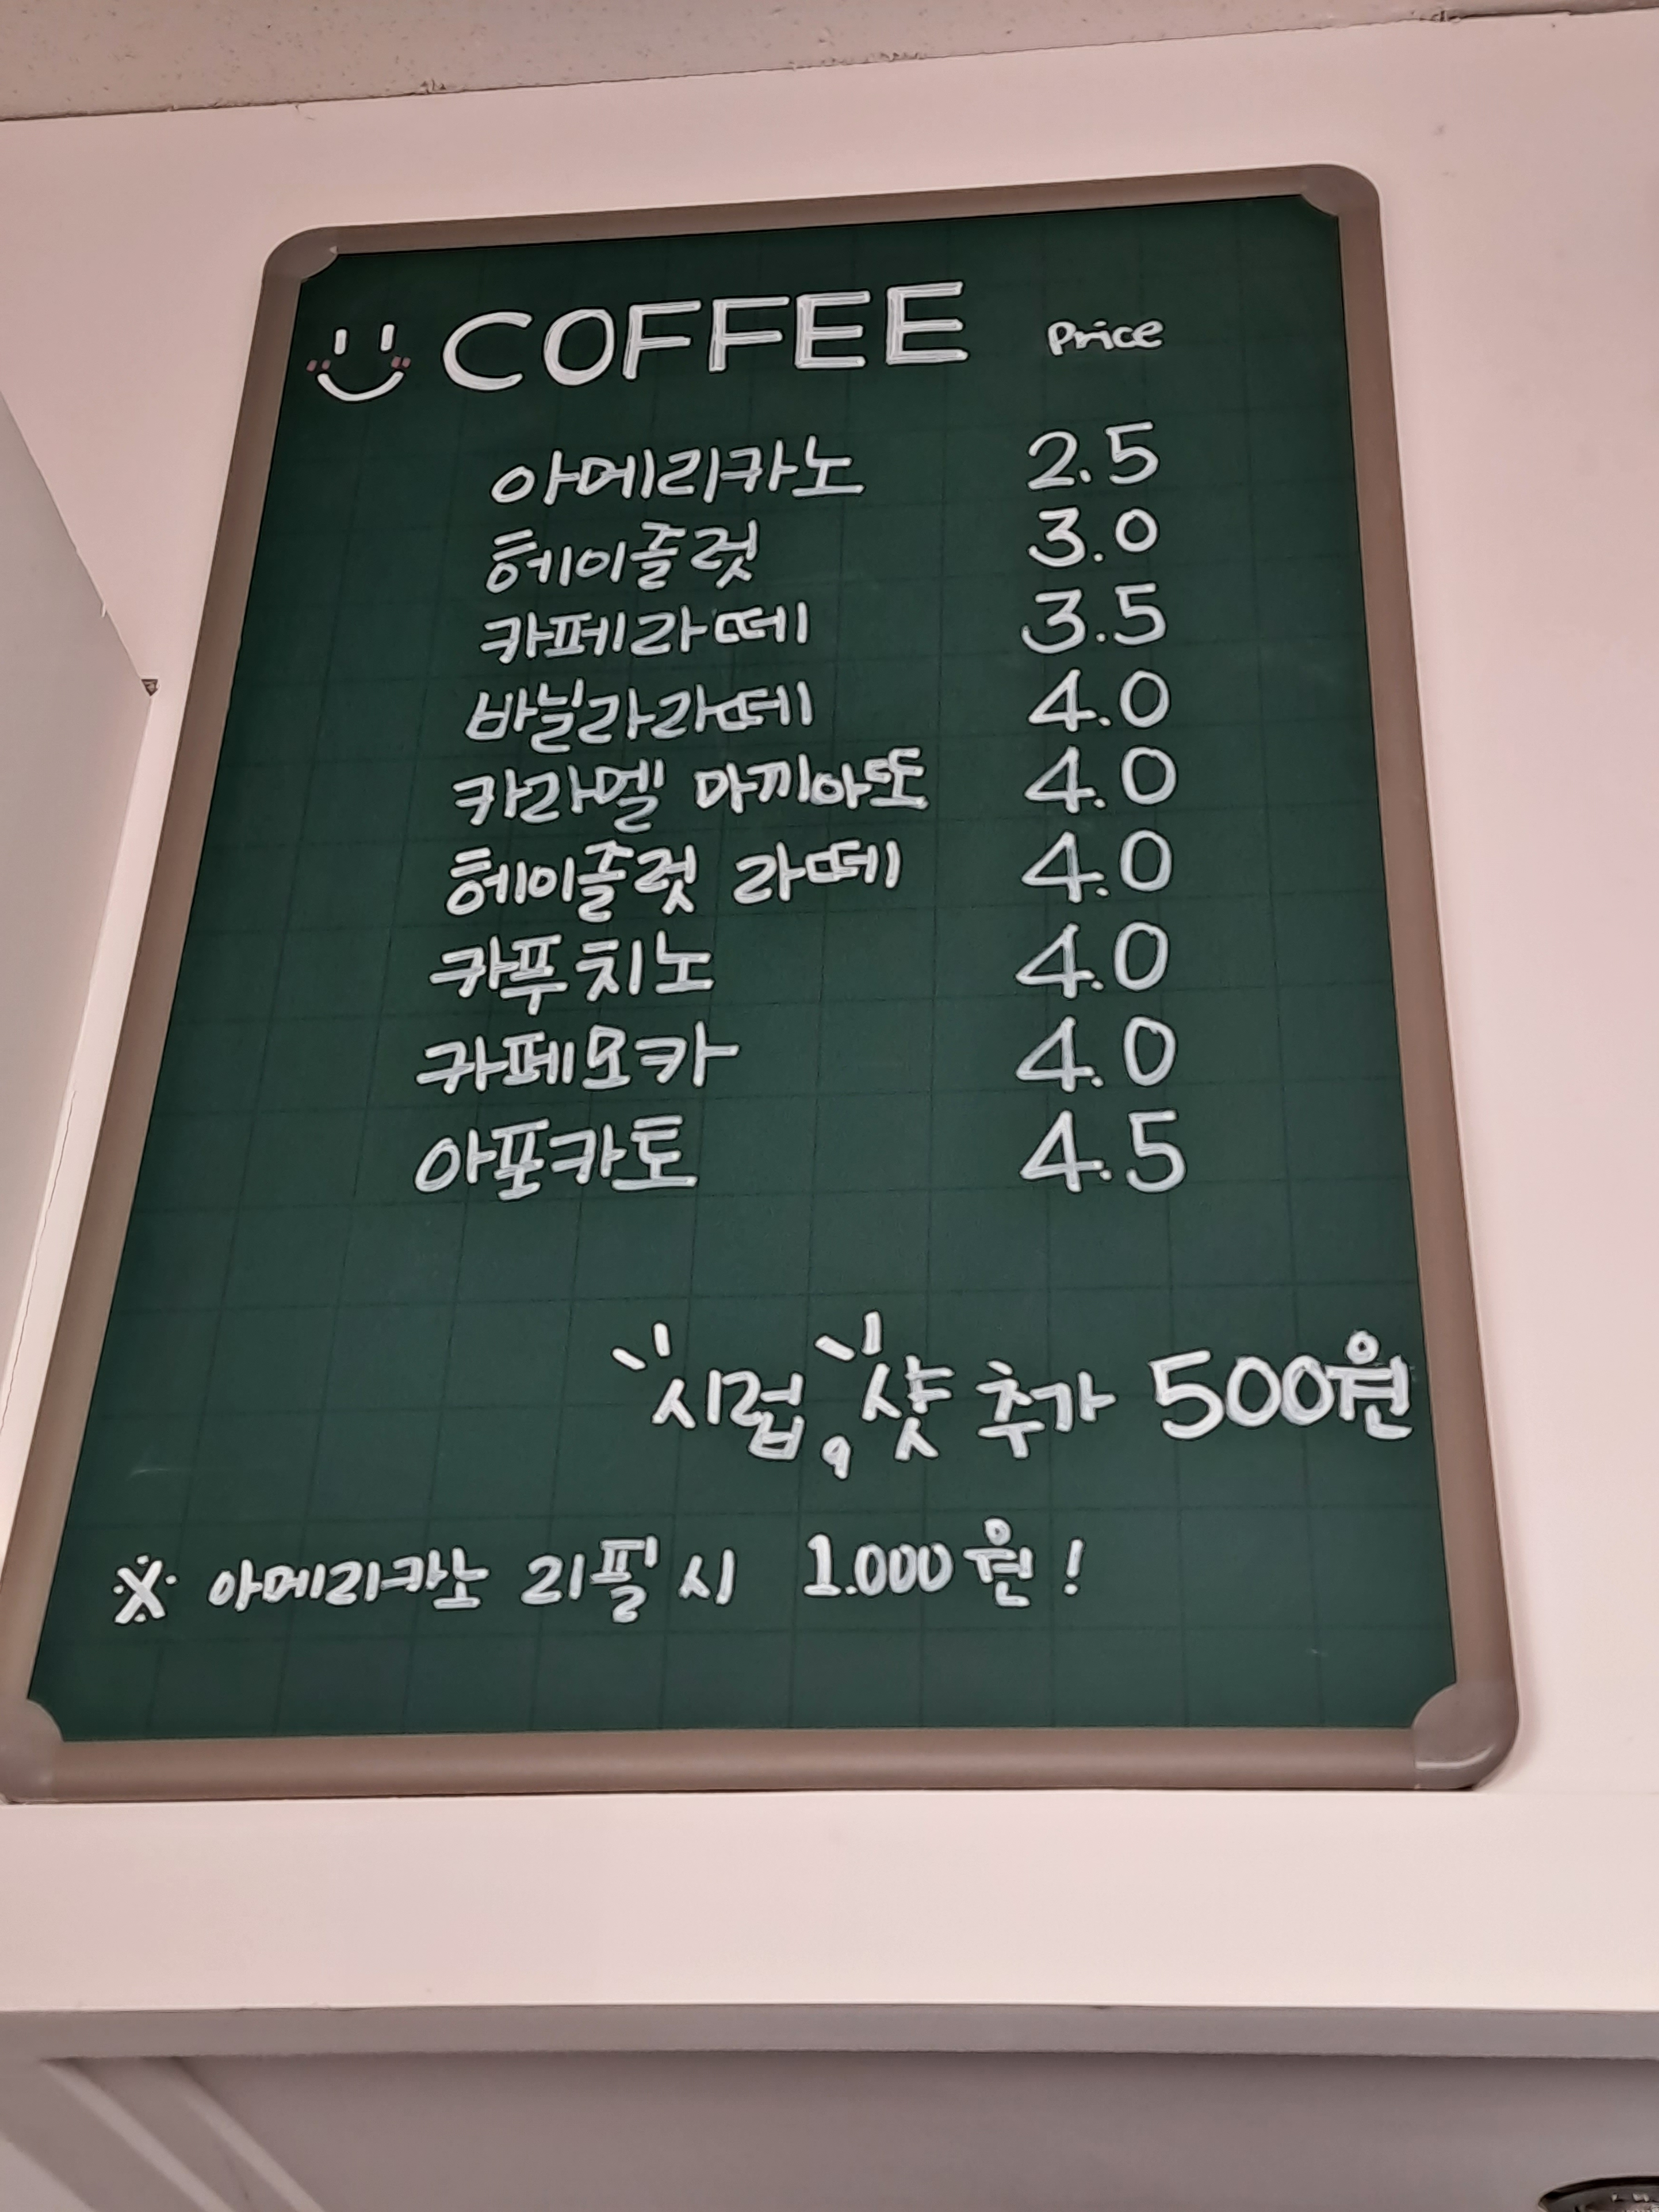 COFFEE Price
아메리카노 2.5
헤이즐럿 3.0
카페라떼 3.5
바닐라라떼 4.0
카라멜 마끼아또 4.0
헤이즐럿 라떼 4.0
카푸치노 4.0
카페모카 4.0
아포카토 4.5
시럽, 샷 추가 500원
※ 아메리카노 리필 시 1.000원!